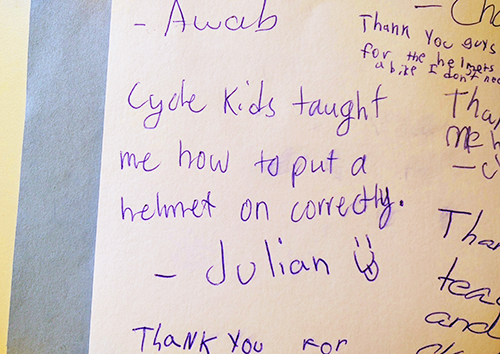 - Awab
Cycle Kids taught
me how to put a
helmet on correctly.
- Julian
THANK YOU FOR
Thank You guys
for the helmets
a bike I don't
me
teac
and